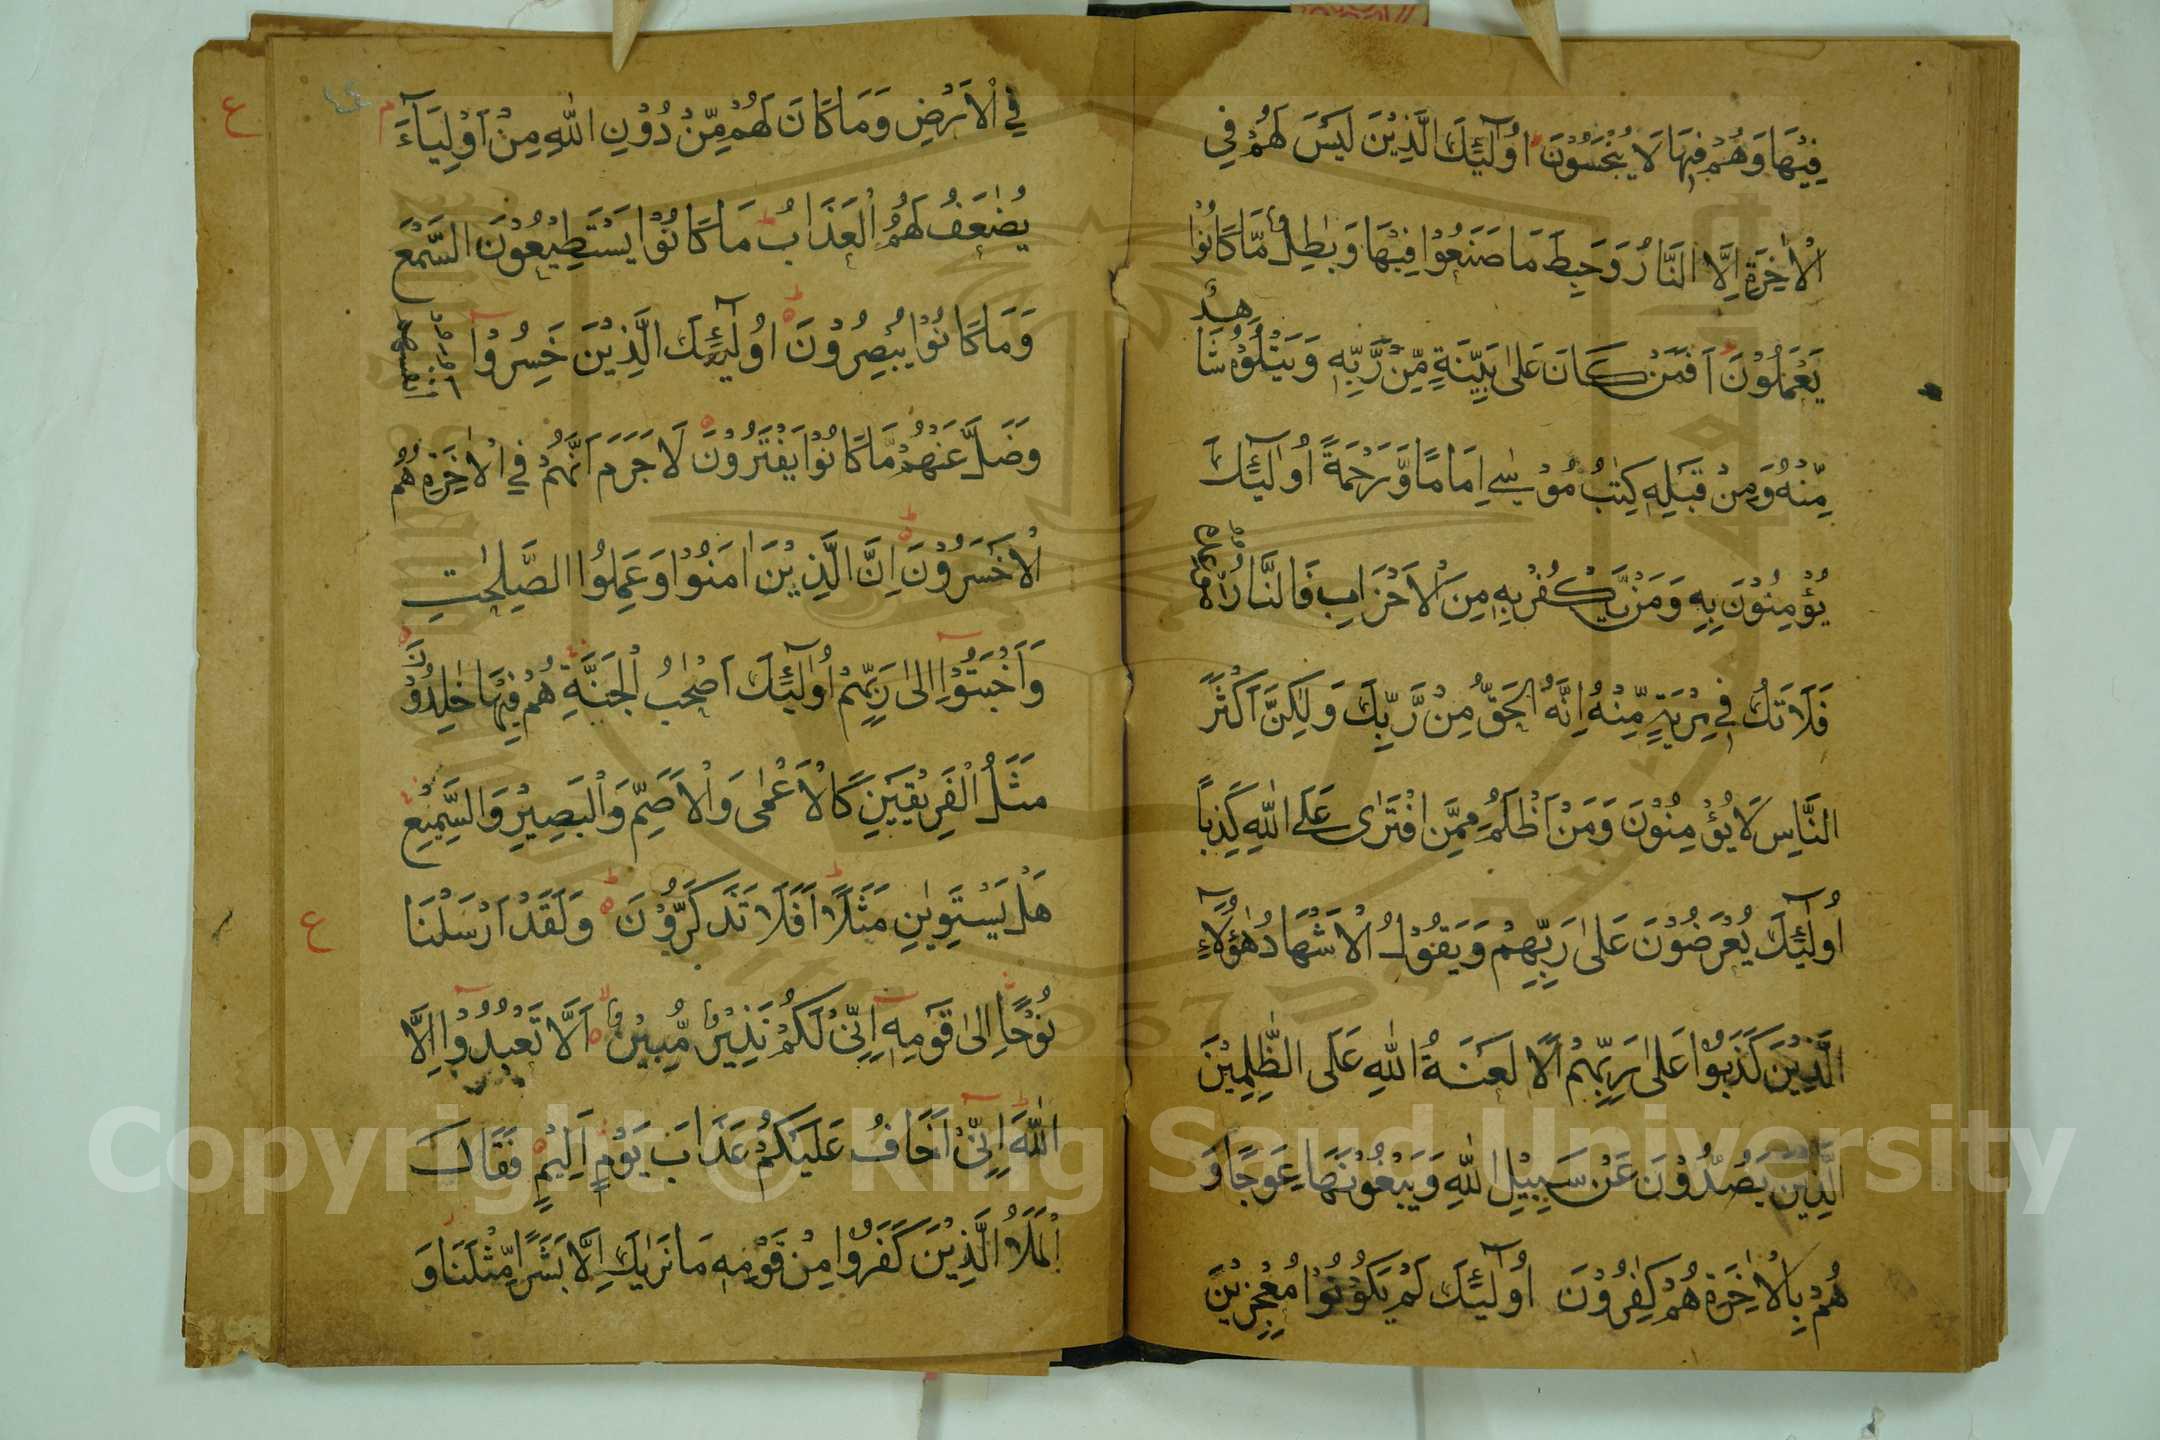 فِيْهَا وَهُمْ فِيْهَا لَا يُبْخَسُوْنَ اُولٰٓئِكَ الَّذِيْنَ لَيْسَ لَهُمْ فِي
الْاٰخِرَةِ اِلَّا النَّارُ وَحَبِطَ مَا صَنَعُوْا فِيْهَا وَبٰطِلٌ مَّا كَانُوْا
يَعْمَلُوْنَ اَفَمَنْ كَانَ عَلٰى بَيِّنَةٍ مِّنْ رَّبِّهٖ وَيَتْلُوْهُ شَاهِدٌ
مِّنْهُ وَمِنْ قَبْلِهٖ كِتٰبُ مُوْسٰى اِمَامًا وَّرَحْمَةً اُولٰٓئِكَ
يُؤْمِنُوْنَ بِهٖ وَمَنْ يَّكْفُرْ بِهٖ مِنَ الْاَحْزَابِ فَالنَّارُ مَوْعِدُهٗ
فَلَا تَكُ فِيْ مِرْيَةٍ مِّنْهُ اِنَّهُ الْحَقُّ مِنْ رَّبِّكَ وَلٰكِنَّ اَكْثَرَ
النَّاسِ لَا يُؤْمِنُوْنَ وَمَنْ اَظْلَمُ مِمَّنِ افْتَرٰى عَلَى اللّٰهِ كَذِبًا
اُولٰٓئِكَ يُعْرَضُوْنَ عَلٰى رَبِّهِمْ وَيَقُوْلُ الْاَشْهَادُ هٰؤُلَآءِ
الَّذِيْنَ كَذَبُوْا عَلٰى رَبِّهِمْ اَلَا لَعْنَةُ اللّٰهِ عَلَى الظّٰلِمِيْنَ
الَّذِيْنَ يَصُدُّوْنَ عَنْ سَبِيْلِ اللّٰهِ وَيَبْغُوْنَهَا عِوَجًا وَ
هُمْ بِالْاٰخِرَةِ هُمْ كٰفِرُوْنَ اُولٰٓئِكَ لَمْ يَكُوْنُوْا مُعْجِزِيْنَ
فِي الْاَرْضِ وَمَا كَانَ لَهُمْ مِّنْ دُوْنِ اللّٰهِ مِنْ اَوْلِيَآءَ م
يُضٰعَفُ لَهُمُ الْعَذَابُ مَا كَانُوْا يَسْتَطِيْعُوْنَ السَّمْعَ
وَمَا كَانُوْا يُبْصِرُوْنَ اُولٰٓئِكَ الَّذِيْنَ خَسِرُوْا اَنْفُسَهُمْ
وَضَلَّ عَنْهُمْ مَّا كَانُوْا يَفْتَرُوْنَ لَا جَرَمَ اَنَّهُمْ فِي الْاٰخِرَةِ هُمُ
الْاَخْسَرُوْنَ اِنَّ الَّذِيْنَ اٰمَنُوْا وَعَمِلُوا الصّٰلِحٰتِ
وَاَخْبَتُوْا اِلٰى رَبِّهِمْ اُولٰٓئِكَ اَصْحٰبُ الْجَنَّةِ هُمْ فِيْهَا خٰلِدُوْنَ
مَثَلُ الْفَرِيْقَيْنِ كَالْاَعْمٰى وَالْاَصَمِّ وَالْبَصِيْرِ وَالسَّمِيْعِ
هَلْ يَسْتَوِيٰنِ مَثَلًا اَفَلَا تَذَكَّرُوْنَ وَلَقَدْ اَرْسَلْنَا ع
نُوْحًا اِلٰى قَوْمِهٖ اِنِّيْ لَكُمْ نَذِيْرٌ مُّبِيْنٌ اَلَّا تَعْبُدُوْا اِلَّا
اللّٰهَ اِنِّيْ اَخَافُ عَلَيْكُمْ عَذَابَ يَوْمٍ اَلِيْمٍ فَقَالَ
الْمَلَاُ الَّذِيْنَ كَفَرُوْا مِنْ قَوْمِهٖ مَا نَرٰىكَ اِلَّا بَشَرًا مِّثْلَنَا وَ
ع
Copyright © King Saud University